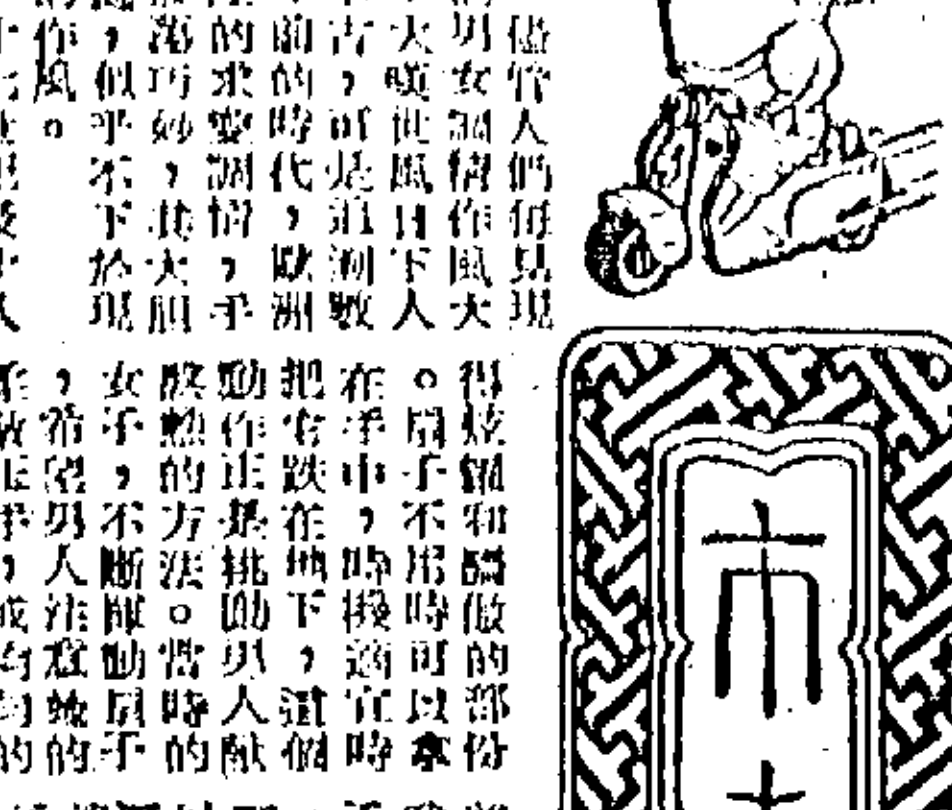 儘管人們每見現
男女調情作風大
大嘆世風日下人
古,可是追溯數
前的時代,歐洲
的求愛調情,手
萬巧妙,其大胆
,似乎不下於現
作風。
得炫耀和驕傲的部份
。扇子不用時可以拿
在手中,時機適宜時
把它跌在地下,這個
動作正是挑動男人献
殷勤的方法。當時的
女子,不斷動扇子
,希望男人注意她的
市